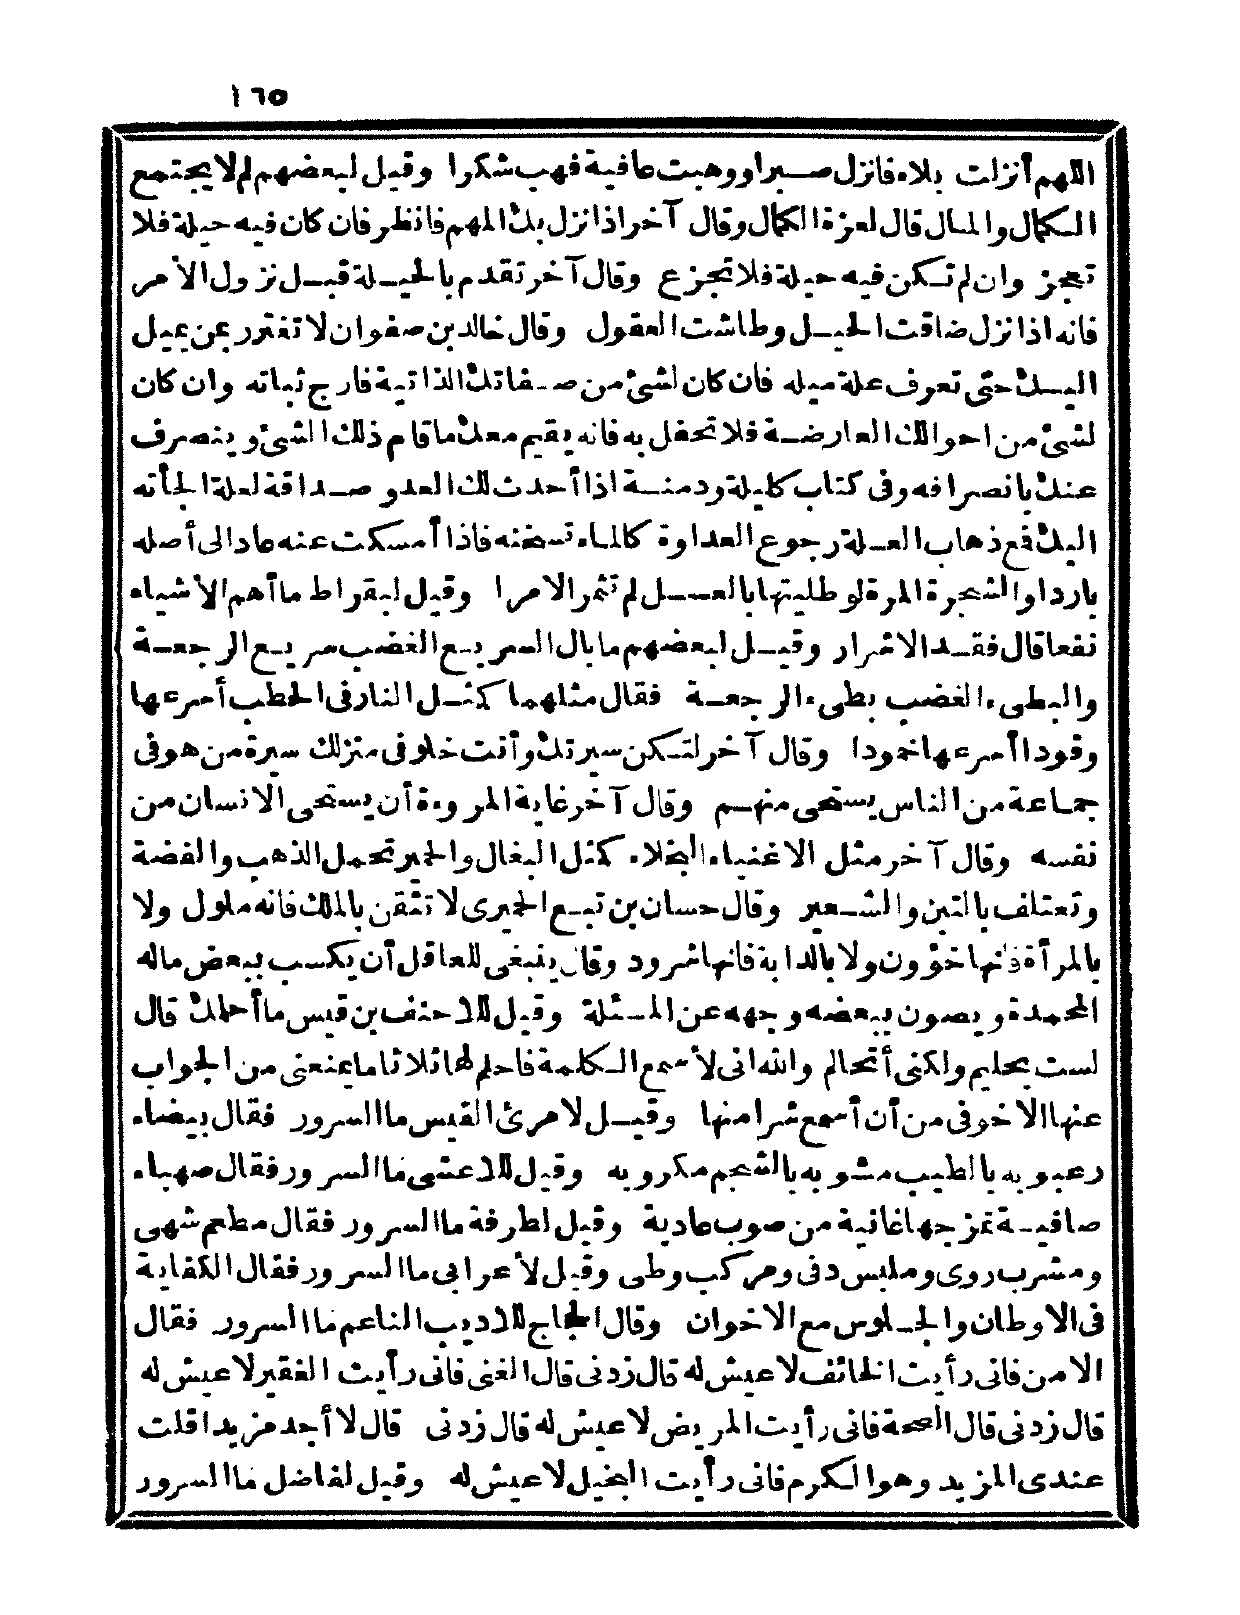 ١٦٥
اللهم أنزلت بلاء فانزل صبرا ووهبت عافية فهب شكرا وقيل لبعضهم لم لا يجتمع
الكمال والمال قال لعزة الكمال وقال آخر اذا نزل بك المهم فانظر فان كان فيه حيلة فلا
تعجز وان لم تكن فيه حيلة فلا تجزع وقال آخر تقدم بالحيلة قبل نزول الأمر
فانه اذا نزل ضاقت الحيل وطاشت العقول وقال خالد بن صفوان لا تغترر بمن يميل
اليك حتى تعرف علة ميله فان كان لشئ من صفاتك الذاتية فارج ثباته وان كان
لشئ من احوالك العارضة فلا تحفل به فانه يقيم معك ما قام ذلك الشئ وينصرف
عنك بانصرافه وفى كتاب كليلة ودمنة اذا أحدث لك العدو صداقة لعلة الجأته
اليك فمع ذهاب العلة رجوع العداوة كالماء تسخنه فاذا أمسكت عنه عاد الى أصله
باردا والشجرة المرة لو طليتها بالعسل لم تثمر الا مرا وقيل لبقراط ما أهم الأشياء
نفعا قال فقد الاشرار وقيل لبعضهم ما بال السريع الغضب سريع الرجعة
والبطىء الغضب بطىء الرجعة فقال مثلهما كمثل النار فى الحطب أسرعها
وقودا أسرعها خمودا وقال آخر لتكن سيرتك وأنت خلو فى منزلك سيرة من هو فى
جماعة من الناس يستحى منهم وقال آخر غاية المروءة أن يستحى الانسان من
نفسه وقال آخر مثل الاغنياء البخلاء كمثل البغال والحمير تحمل الذهب والفضة
وتعتلف بالتبن والشعير وقال حسان بن تبع الحميرى لا تثقن بالملك فانه ملول ولا
بالمرأة فانها خؤون ولا بالدابة فانها شرود وقال ينبغى للعاقل أن يكسب ببعض ماله
المحمدة ويصون ببعضه وجهه عن المسئلة وقيل للاحنف بن قيس ما أحلمك قال
لست بحليم ولكنى أتحالم والله انى لأسمع الكلمة فاحلم لها ثلاثا ما يمنعنى من الجواب
عنها الا خوفى من أن أسمع شرا منها وقيل لامرئ القيس ما السرور فقال بيضاء
رعبوبه بالطيب مشوبه بالشحم مكروبه وقيل للاعشى ما السرور فقال صهباء
صافية تمزجها غانية من صوب غادية وقيل لطرفة ما السرور فقال مطعم شهى
ومشرب روى وملبس دفى ومركب وطى وقيل لأعرابى ما السرور فقال الكفاية
فى الاوطان والجلوس مع الاخوان وقال الحجاج للاديب الناعم ما السرور فقال
الامن فانى رأيت الخائف لا عيش له قال زدنى قال الغنى فانى رأيت الفقير لا عيش له
قال زدنى قال الصحة فانى رأيت المريض لا عيش له قال زدنى قال لا أجد مزيدا قلت
عندى المزيد وهو الكرم فانى رأيت البخيل لا عيش له وقيل لفاضل ما السرور